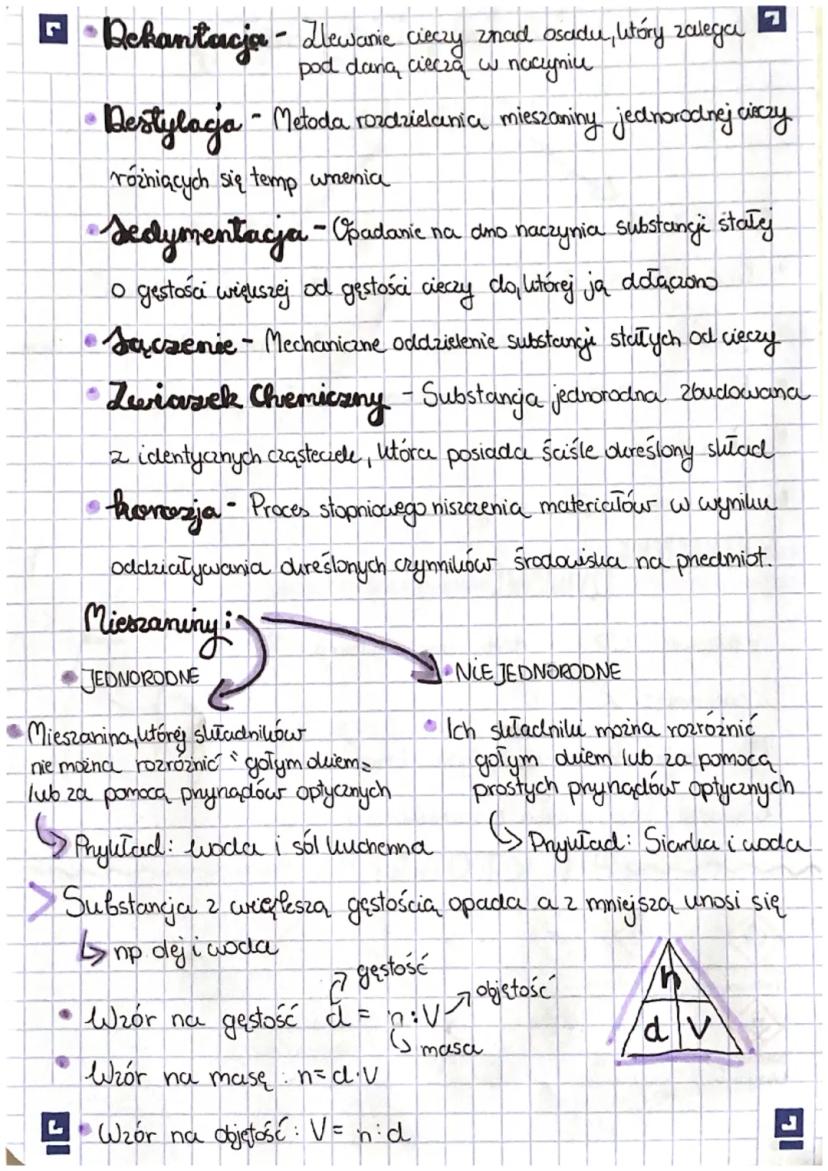 Dekantacja - Zlewanie cieczy znad osadu, który zalega
pod daną cieczą w naczyniu
Destylacja - Metoda rozdzielania mieszaniny jednorodnej cieczy
różniących się temp wrzenia
Sedymentacja - Opadanie na dno naczynia substancji stałej
o gęstości większej od gęstości cieczy do, której ją dołączono
Sączenie - Mechaniczne oddzielenie substancji stałych od cieczy
Związek Chemiczny - Substancja jednorodna zbudowana
z identycznych cząsteczek, która posiada ściśle określony skład
korozja - Proces stopniowego niszczenia materiałów w wyniku
oddziaływania określonych czynników środowiska na przedmiot.
Mieszaniny:
JEDNORODNE
NIEJEDNORODNE
Mieszanina, której składników
nie można rozróżnić "gołym okiem"
lub za pomocą przyrządów optycznych
Przykład: woda i sól kuchenna
Ich składniki można rozróżnić
gołym okiem lub za pomocą
prostych przyrządów optycznych
Przykład: Siarka i woda
> Substancja z większą gęstością opada a z mniejszą unosi się
np olej i woda
gęstość
objętość
Wzór na gęstość d = n : V
masa
n
d V
Wzór na masę : n = d · V
Wzór na objętość : V = n : d